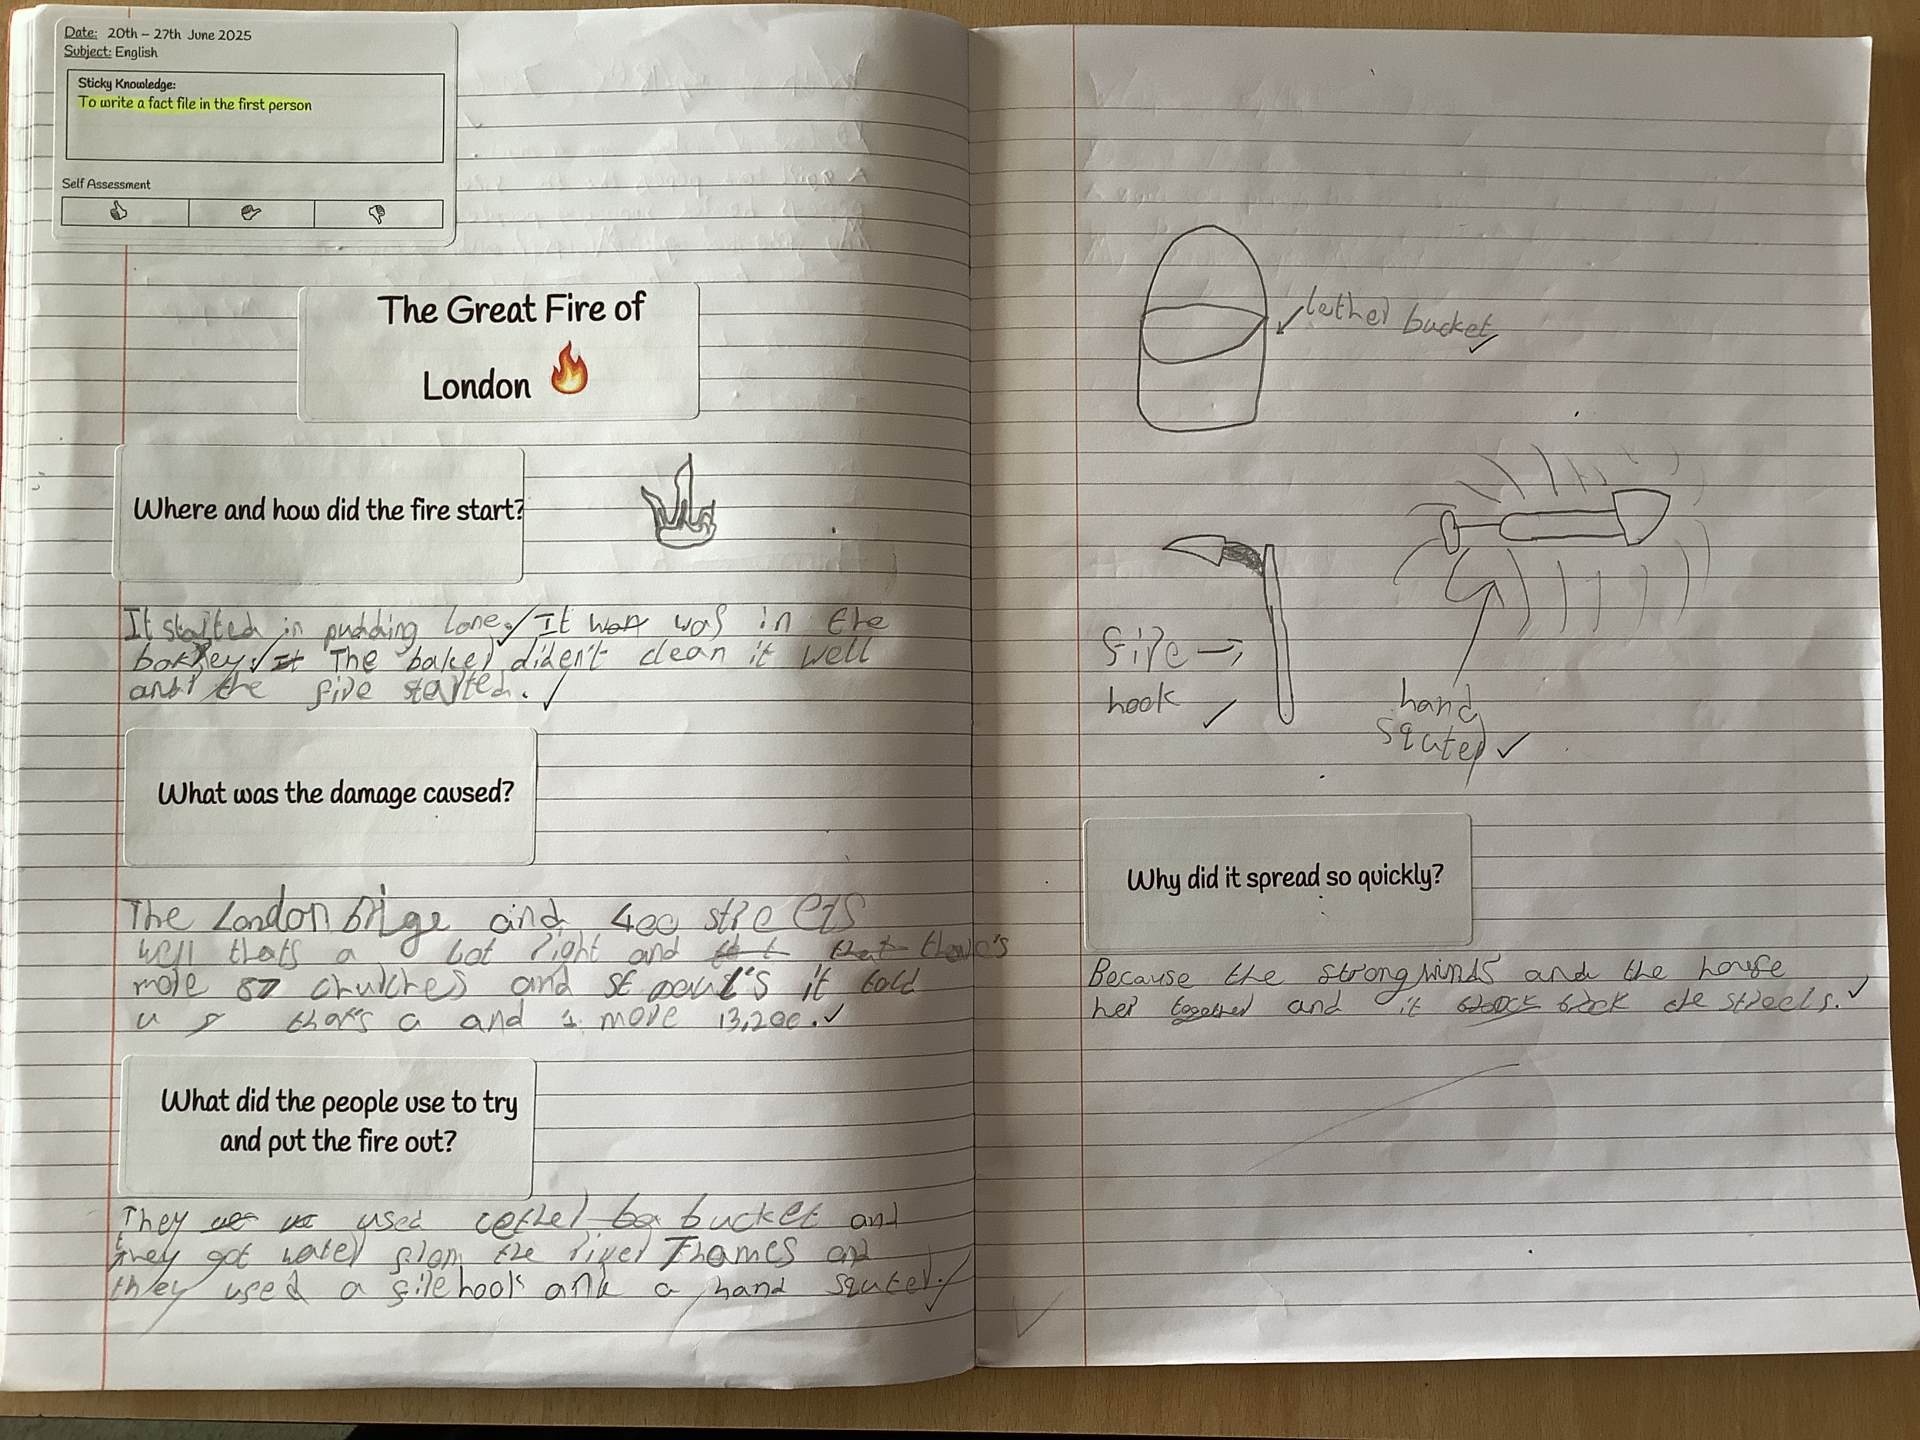 Date: 20th – 27th June 2025
Subject: English
Sticky Knowledge:
To write a fact file in the first person
Self Assessment
The Great Fire of
London
Where and how did the fire start?
It started in pudding lane. It was in the
The baker dident clean it well
and the fire started.
What was the damage caused?
The London brige and 400 streets
well thats a lot right and
more 87 churches and st paul's it told
u thats a and 1 more 13,200.
What did the people use to try
and put the fire out?
They used lether bucket and
they got water from the river Thames and
they used a fire hook and a hand squter.
lether bucket
fire
hook
hand
squter
Why did it spread so quickly?
Because the strong winds and the house
her together and it the streets.